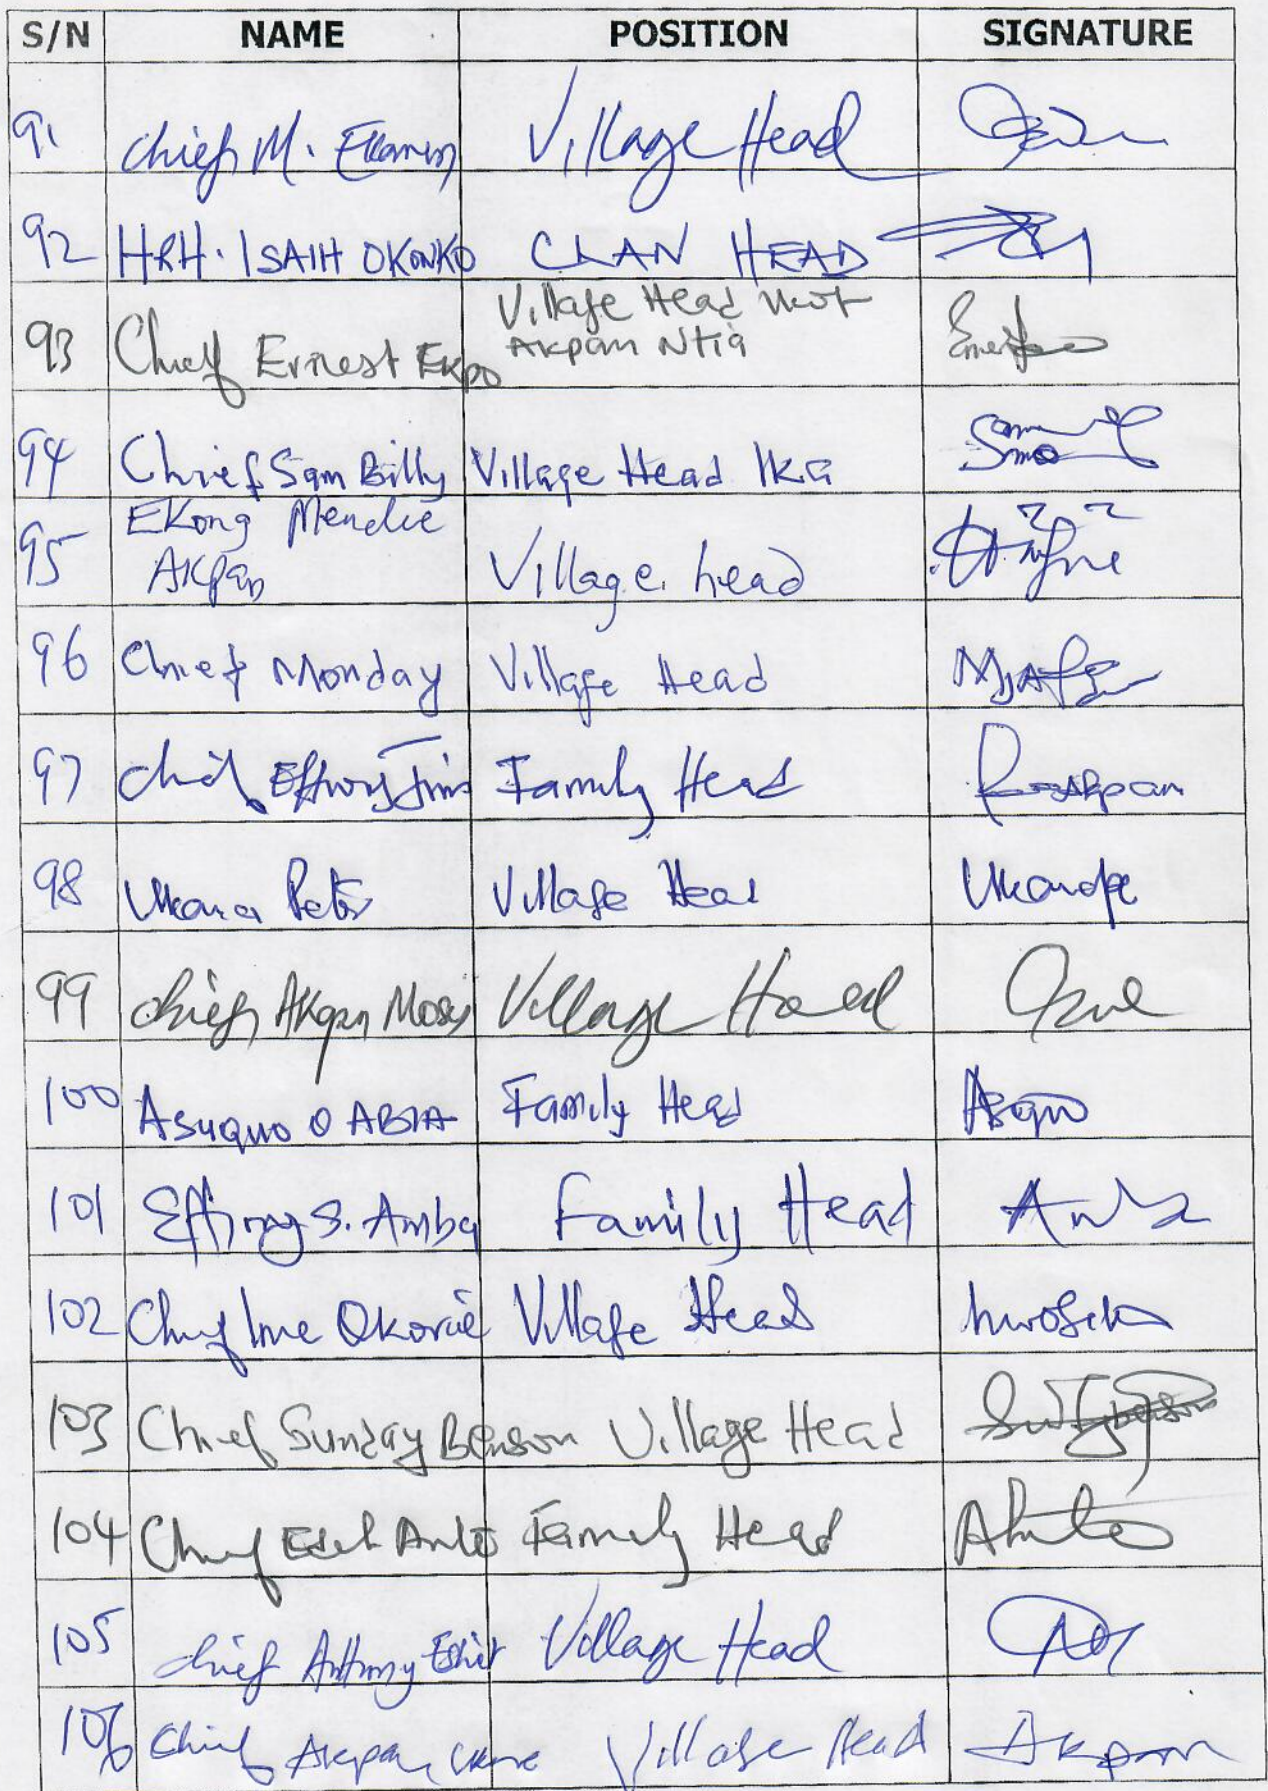 S/N NAME POSITION SIGNATURE
91 Chief M. Ekamem Village Head
92 HRH. ISAIH OKONKO CLAN HEAD
93 Chief Ernest Ekpo Village Head Ikot
Akpan Ntia
94 Chief Sam Billy Village Head Ika
95 Ekong Mendie
Akpan Village head
96 Chief Monday Village Head
97 Chief Effiong Family Head Akpan
98 Ukana Peter Village Head
99 Chief Akpan Moses Village Head
100 Asuquo O ABIA Family Head Asquo
101 Effiong S. Amba Family Head
102 Chief Ime Okorie Village Head
103 Chief Sunday Benson Village Head
104 Chief Family Head
105 Chief Anthony Village Head
106 Chief Akpan Village Head Akpan